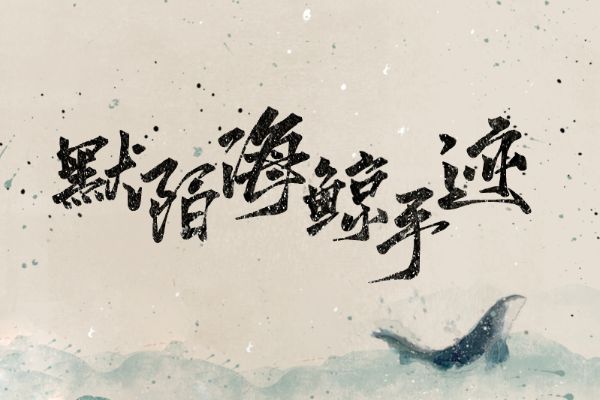 默陌海鲸手迹